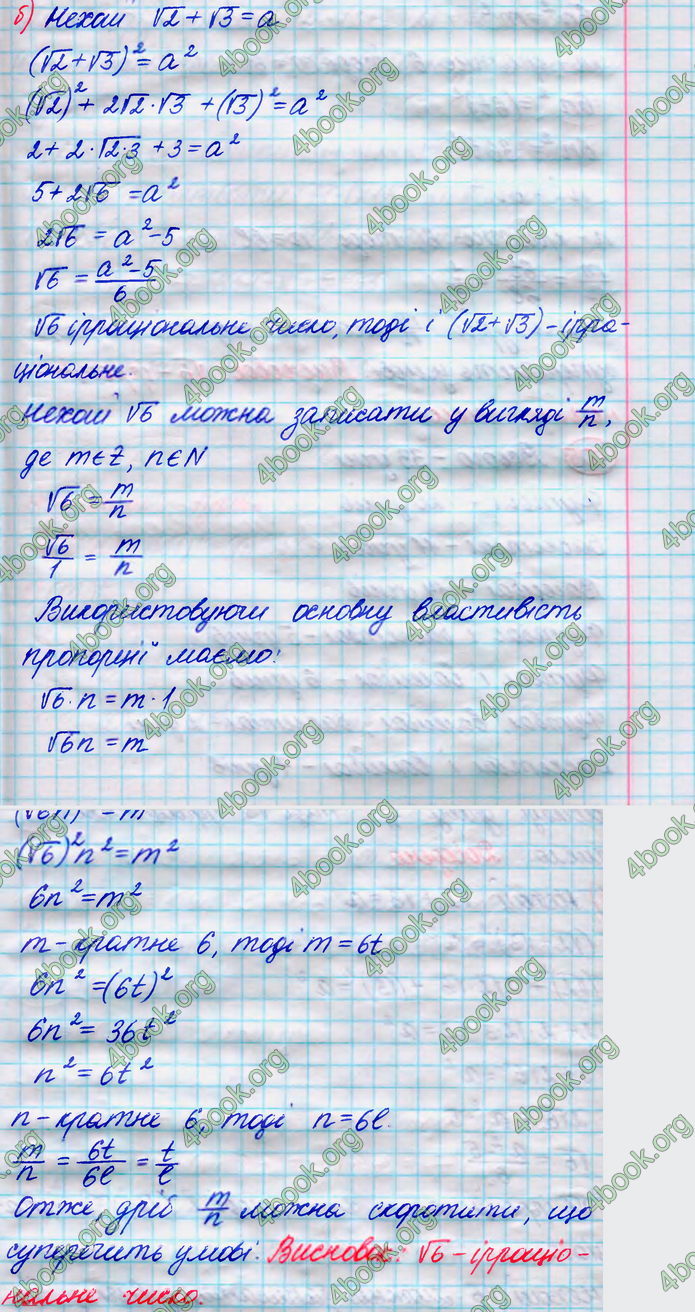 б) Нехай √2 + √3 = a
(√2+√3)² = a²
(√2)² + 2√2·√3 + (√3)² = a²
2 + 2·√2·3 + 3 = a²
5 + 2√6 = a²
2√6 = a² - 5
√6 = (a² - 5)/6
√6 ірраціональне число, тоді і (√2+√3) - ірра-
ціональне.
Нехай √6 можна записати у вигляді m/n,
де m∈Z, n∈N
√6 = m/n
√6/1 = m/n
Використовуючи основну властивість
пропорції маємо:
√6·n = m·1
√6n = m
(√6)²n² = m²
6n² = m²
m - кратне 6, тоді m = 6t
6n² = (6t)²
6n² = 36t²
n² = 6t²
n - кратне 6, тоді n = 6l.
m/n = 6t/6l = t/l
Отже дріб m/n можна скоротити, що
суперечить умові. Висновок: √6 - ірраціо-
нальне число.
4book.org